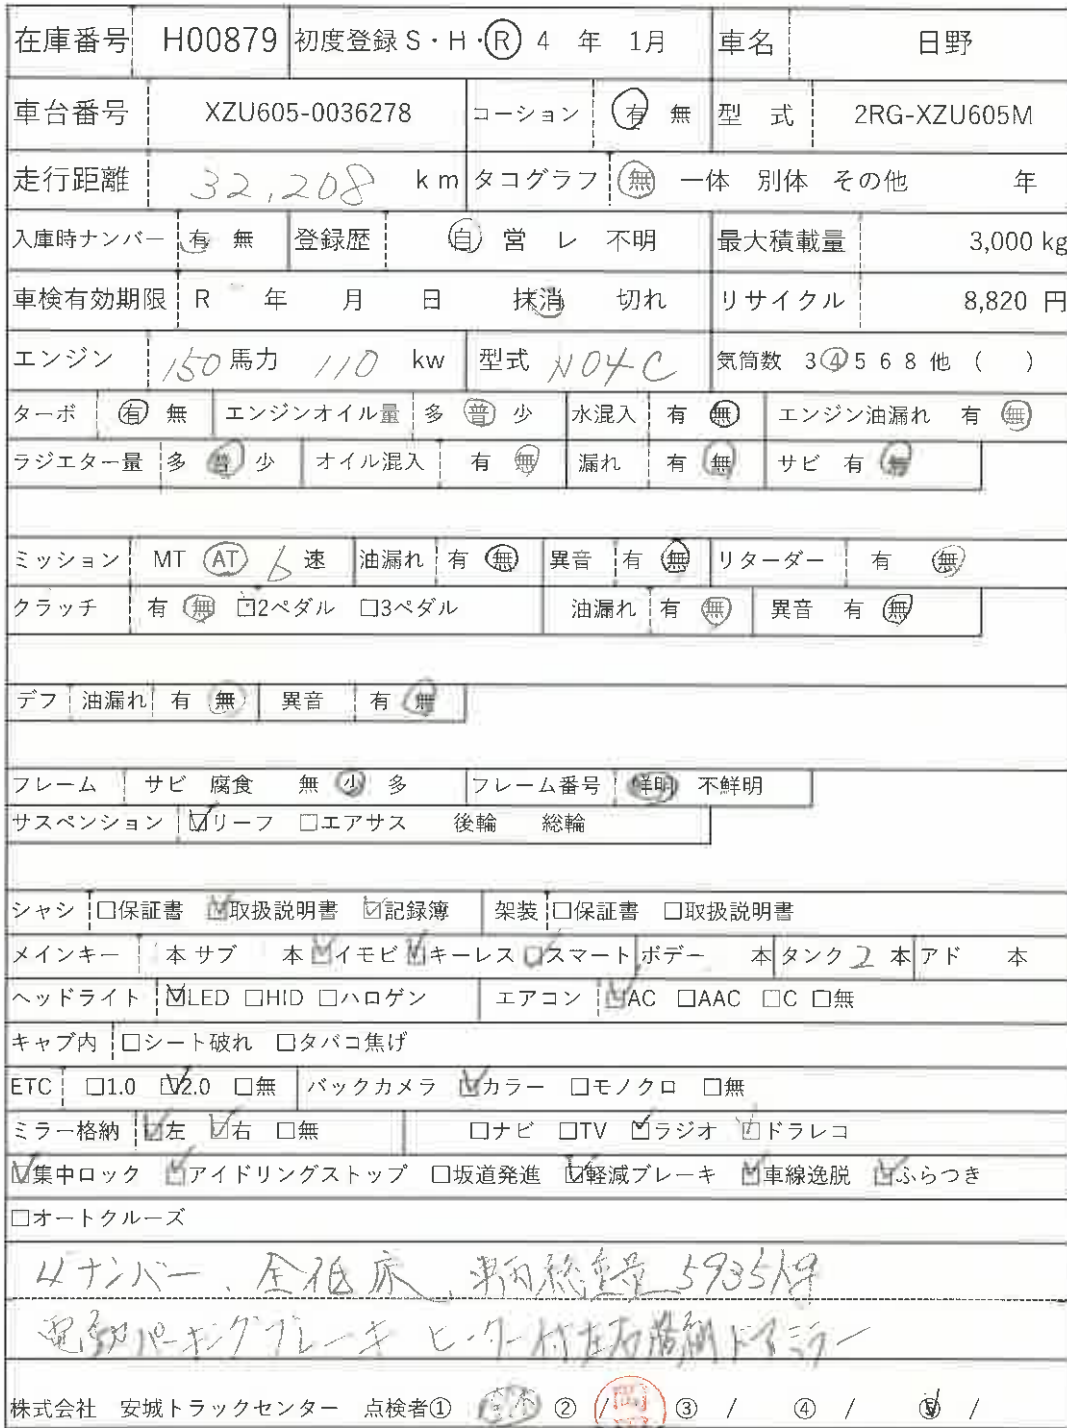 在庫番号 H00879 初度登録 S・H・R 4 年 1月 車名 日野
車台番号 XZU605-0036278 コーション 有 無 型 式 2RG-XZU605M
走行距離 32,208 km タコグラフ 無 一体 別体 その他 年
入庫時ナンバー 有 無 登録歴 自 営 レ 不明 最大積載量 3,000 kg
車検有効期限 R 年 月 日 抹消 切れ リサイクル 8,820 円
エンジン 150 馬力 110 kw 型式 N04C 気筒数 3 4 5 6 8 他 ( )
ターボ 有 無 エンジンオイル量 多 普 少 水混入 有 無 エンジン油漏れ 有 無
ラジエター量 多 普 少 オイル混入 有 無 漏れ 有 無 サビ 有 無
ミッション MT AT 6 速 油漏れ 有 無 異音 有 無 リターダー 有 無
クラッチ 有 無 □2ペダル □3ペダル 油漏れ 有 無 異音 有 無
デフ 油漏れ 有 無 異音 有 無
フレーム サビ 腐食 無 少 多 フレーム番号 鮮明 不鮮明
サスペンション ☑リーフ □エアサス 後輪 総輪
シャシ □保証書 ☑取扱説明書 ☑記録簿 架装 □保証書 □取扱説明書
メインキー 本 サブ 本 ☑イモビ ☑キーレス ☑スマート ボデー 本 タンク 2 本 アド 本
ヘッドライト ☑LED □HID □ハロゲン エアコン ☑AC □AAC □C □無
キャブ内 □シート破れ □タバコ焦げ
ETC □1.0 ☑2.0 □無 バックカメラ ☑カラー □モノクロ □無
ミラー格納 ☑左 ☑右 □無 □ナビ □TV ☑ラジオ ☑ドラレコ
☑集中ロック ☑アイドリングストップ □坂道発進 ☑軽減ブレーキ ☑車線逸脱 ☑ふらつき
□オートクルーズ
4ナンバー、全低床、車両総重量 5935kg
電動パーキングブレーキ ヒーター付左右格納ドアミラー
株式会社 安城トラックセンター 点検者① ② / ③ / ④ / ⑤ /